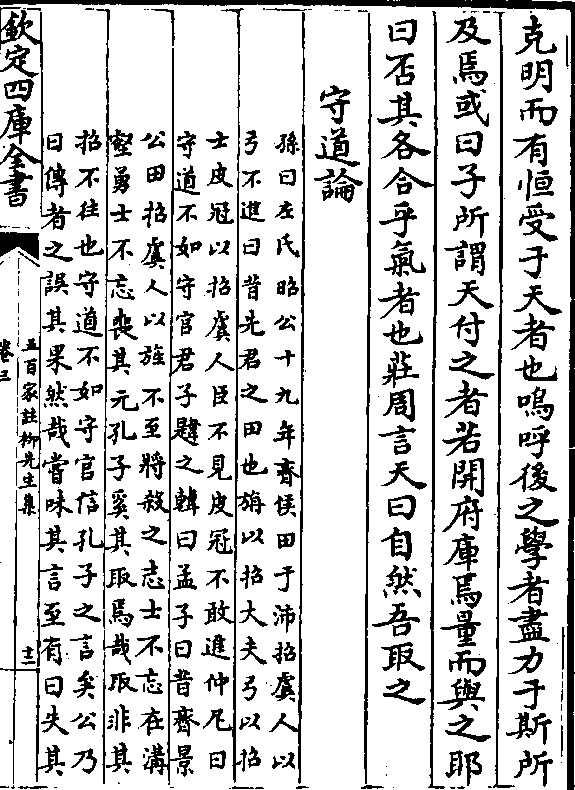 克明而有恒受于天者也嗚呼後之學者盡力于斯所
及焉或曰子所謂天付之者若開府庫焉量而與之耶
曰否其各合乎氣者也莊周言天曰自然吾取之
守道論
孫曰左氏昭公十九年齊侯田于沛招虞人以
弓不進曰昔先君之田也旃以招大夫弓以招
士皮冠以招虞人臣不見皮冠不敢進仲尼曰
守道不如守官君子韙之韓曰孟子曰昔齊景
公田招虞人以旌不至將殺之志士不忘在溝
壑勇士不忘喪其元孔子奚其取焉哉取非其
招不往也守道不如守官信孔子之言矣公乃
曰傳者之誤其果然哉嘗味其言至有曰失其
欽定四庫全書
五百家註柳先生集
卷三
十二